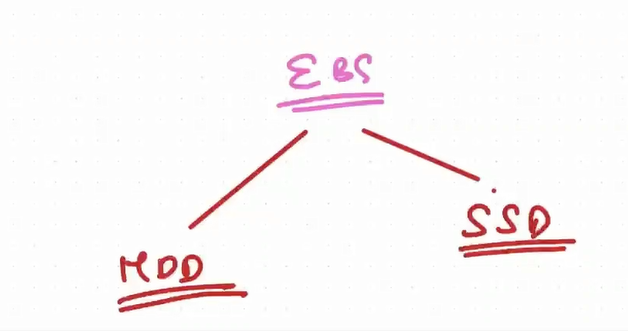 EBS
HDD
SSD